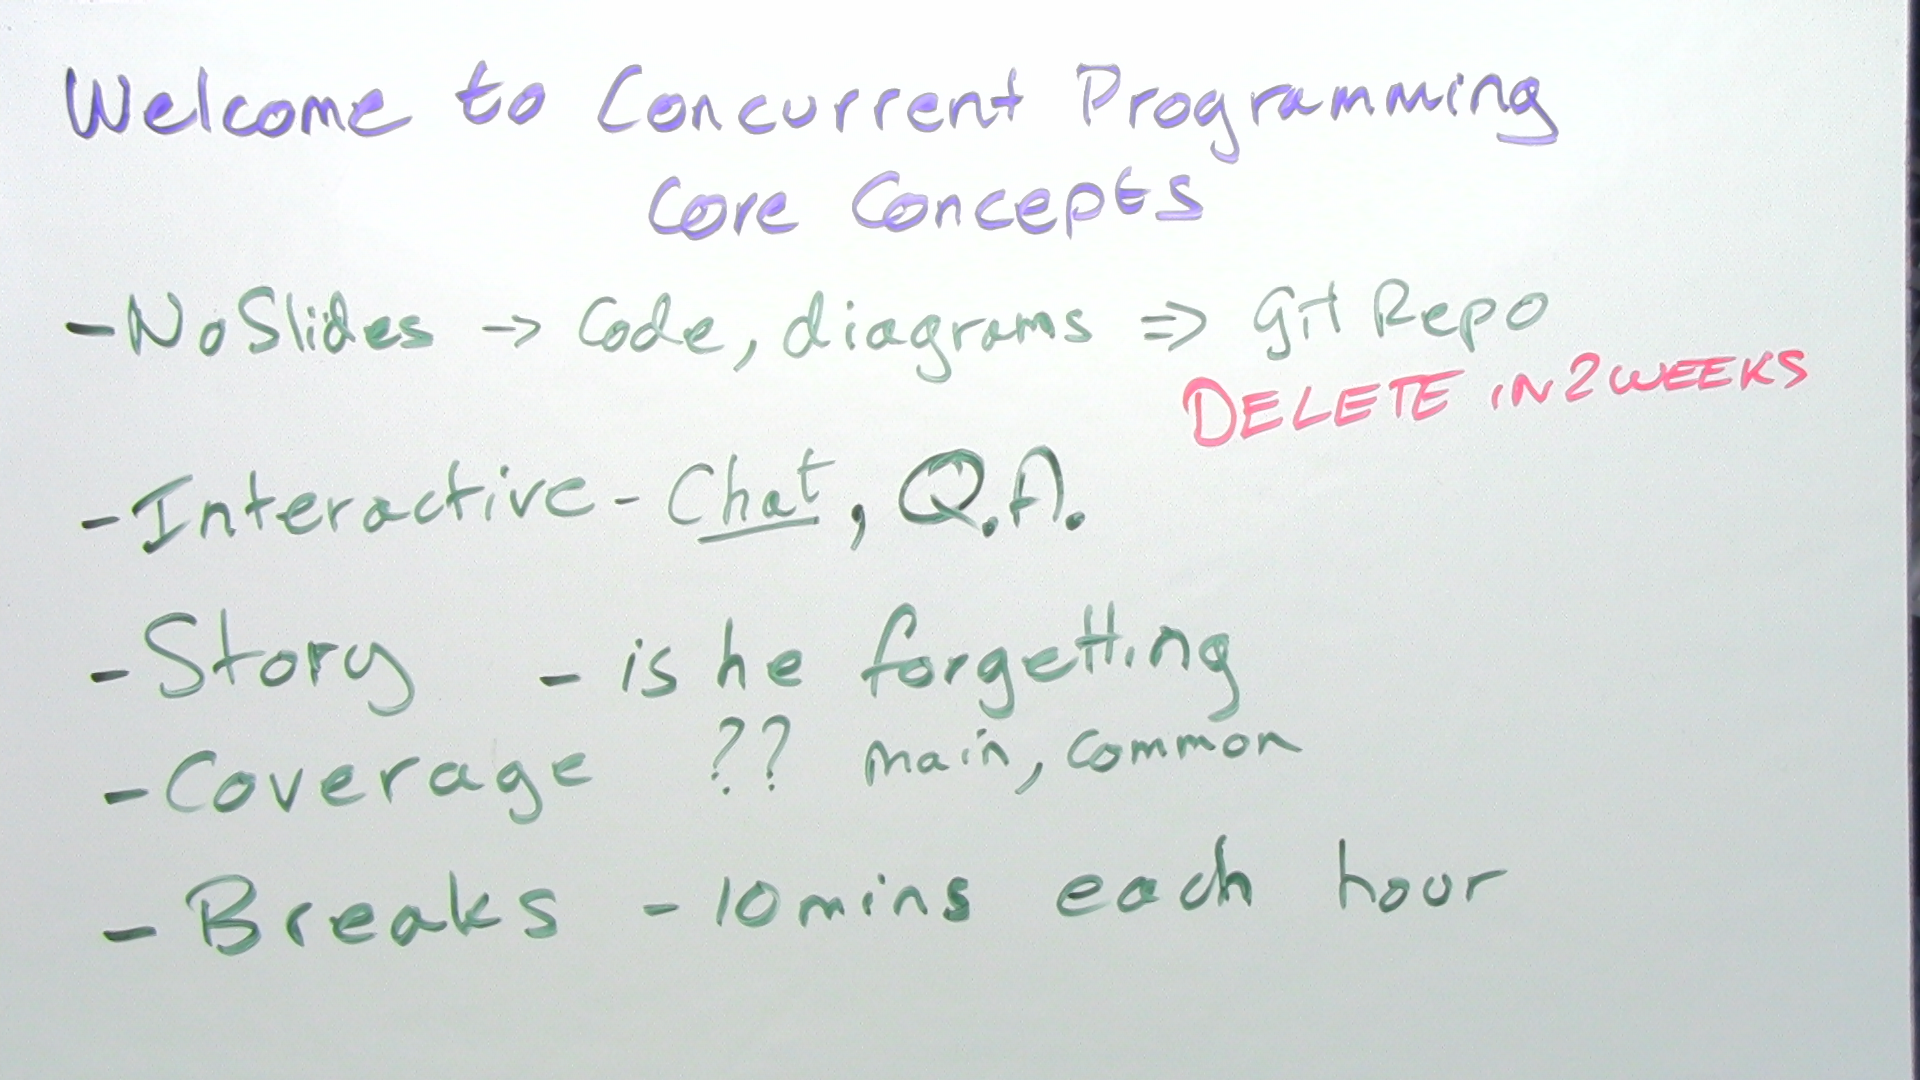 Welcome to Concurrent Programming
Core Concepts
- No Slides -> Code, diagrams => git Repo
DELETE IN 2 WEEKS
- Interactive - Chat, Q.A.
- Story - is he forgetting
- Coverage ?? main, common
- Breaks - 10 mins each hour